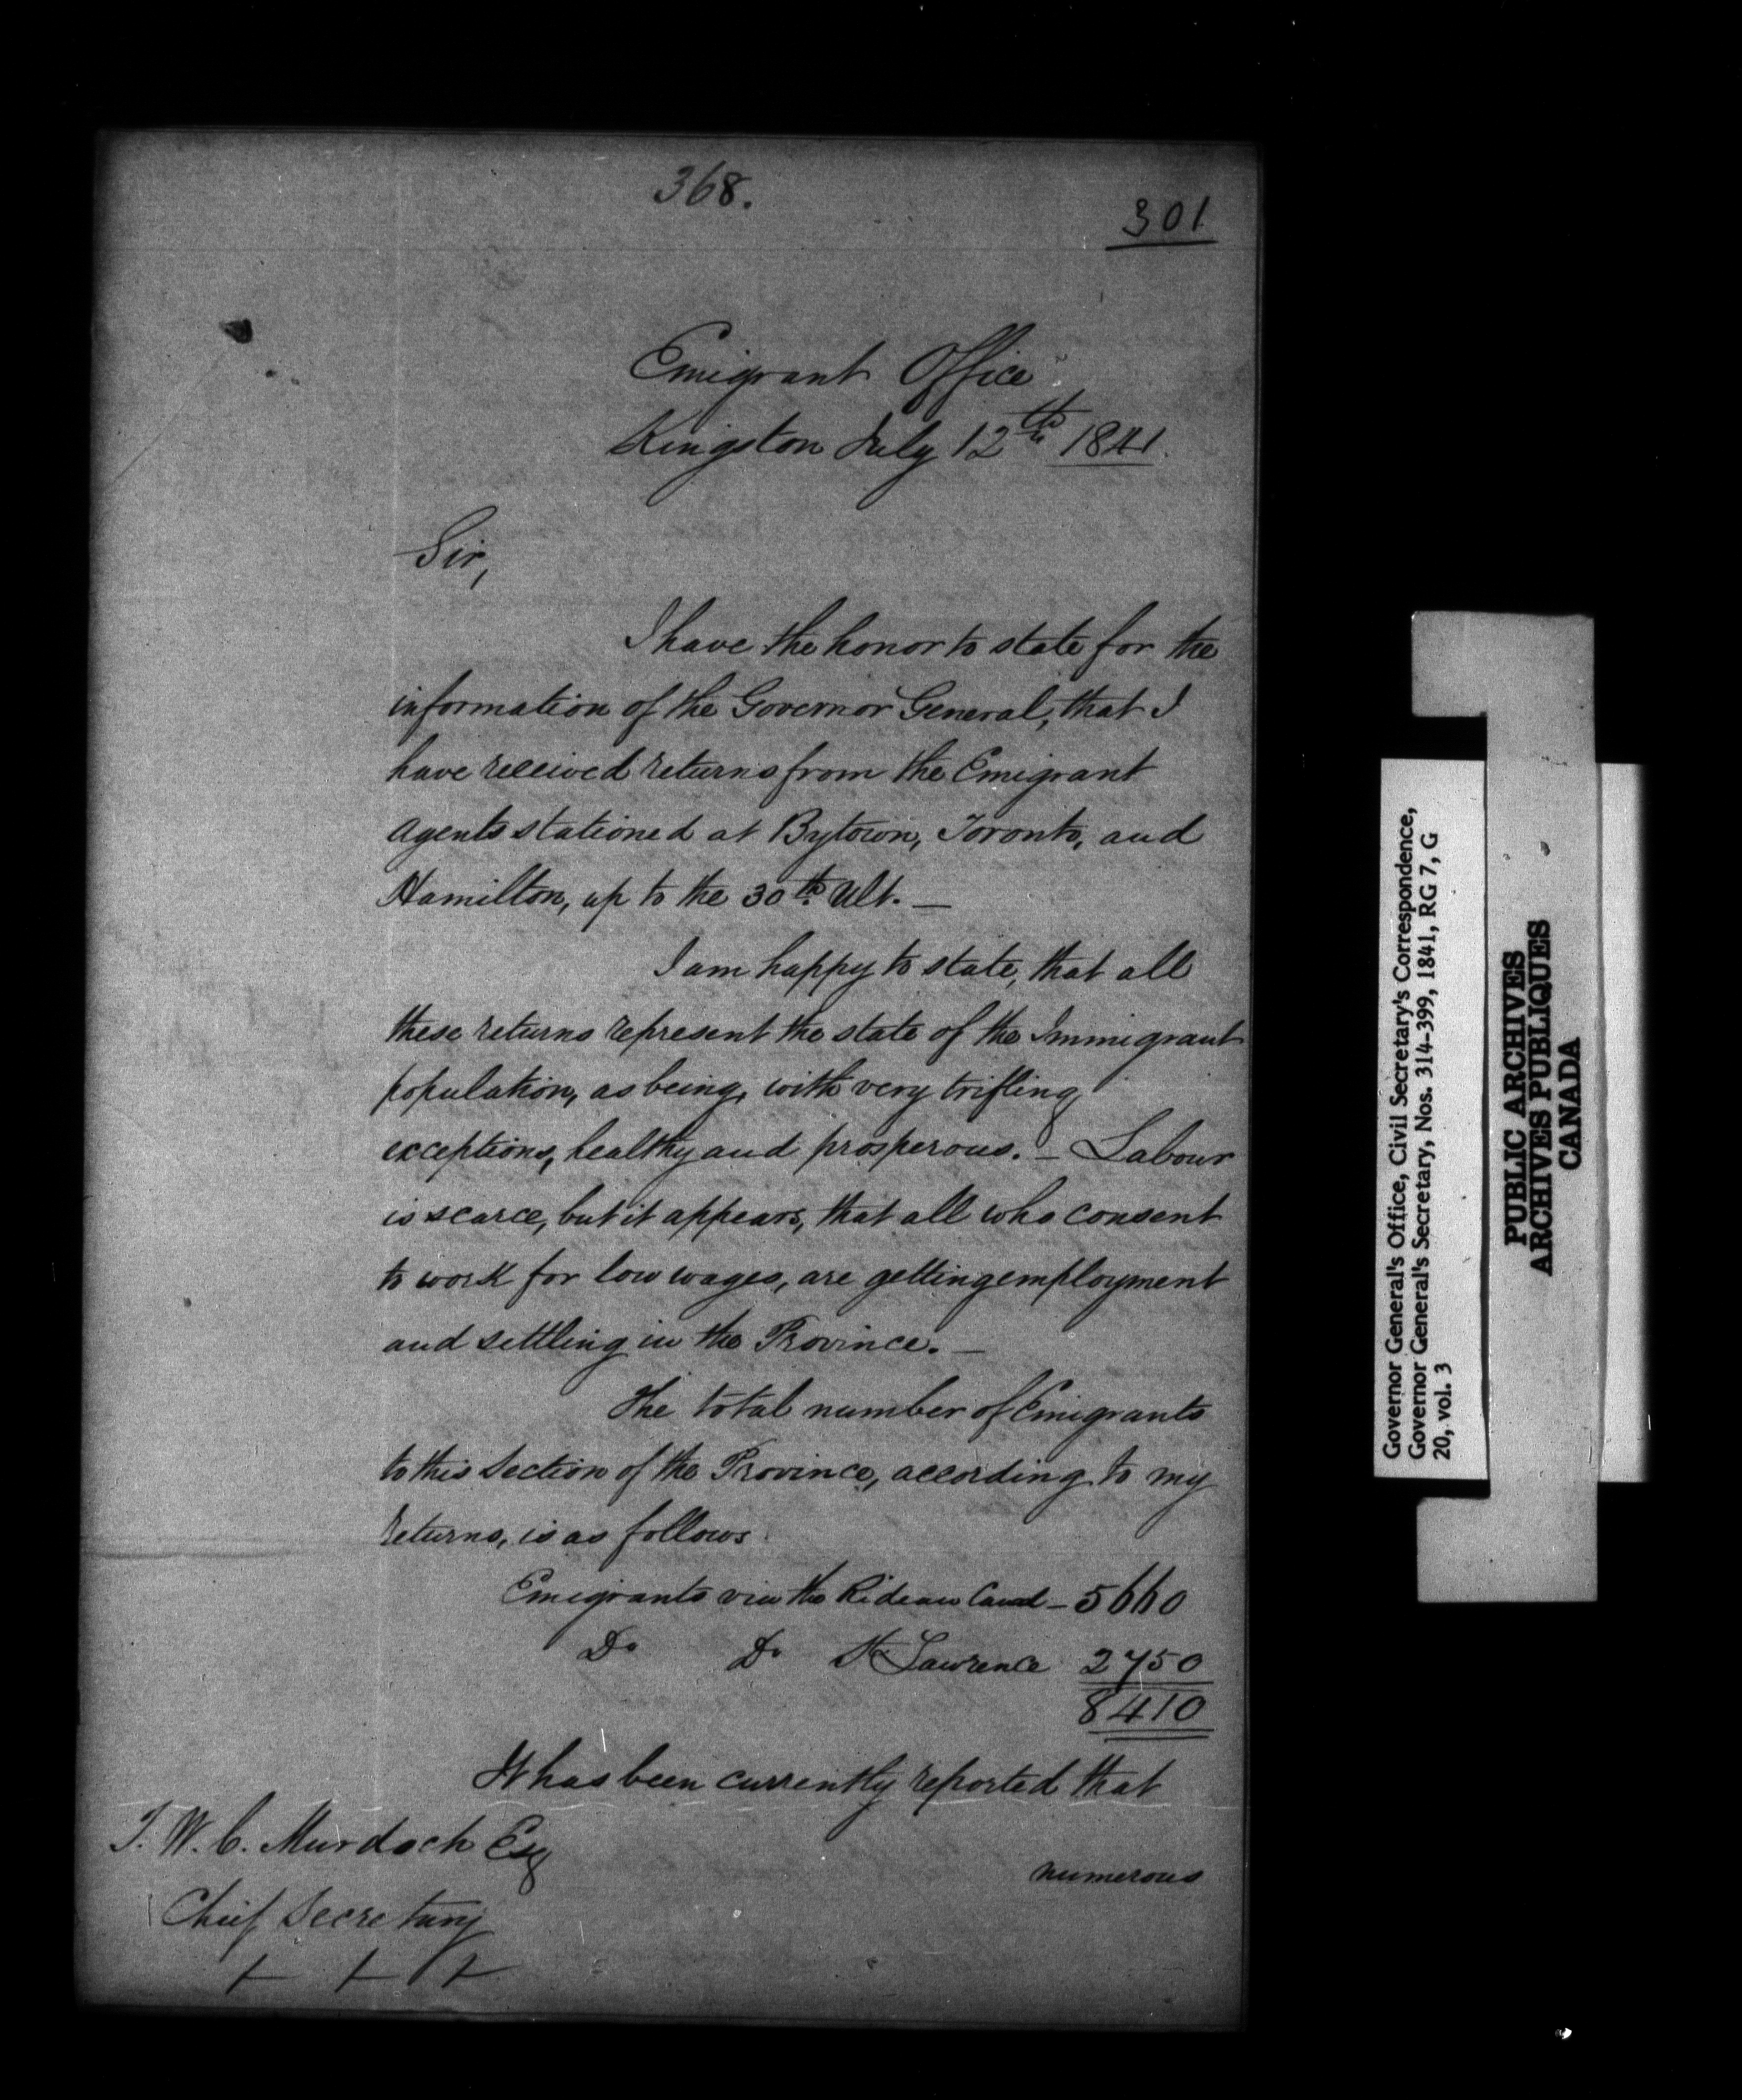 368.
301
Emigrant Office
Kingston July 12th 1841.
Sir,
I have the honor to state for the
information of the Governor General, that I
have received returns from the Emigrant
Agents stationed at Bytown, Toronto, and
Hamilton, up to the 30th Ult. —
I am happy to state, that all
these returns represent the state of the Immigrant
population, as being, with very trifling
exceptions, healthy and prosperous. – Labour
is scarce, but it appears, that all who consent
to work for low wages, are getting employment
and settling in the Province. —
The total number of Emigrants
to this Section of the Province, according to my
returns, is as follows
Emigrants via the Rideau Canal – 5660
Do Do St Lawrence 2750
8410
It has been currently reported that
numerous
T. W. C. Murdoch Esq
Chief Secretary
Governor General's Office, Civil Secretary's Correspondence,
Governor General's Secretary, Nos. 314-399, 1841, RG 7, G
20, vol. 3
PUBLIC ARCHIVES
ARCHIVES PUBLIQUES
CANADA